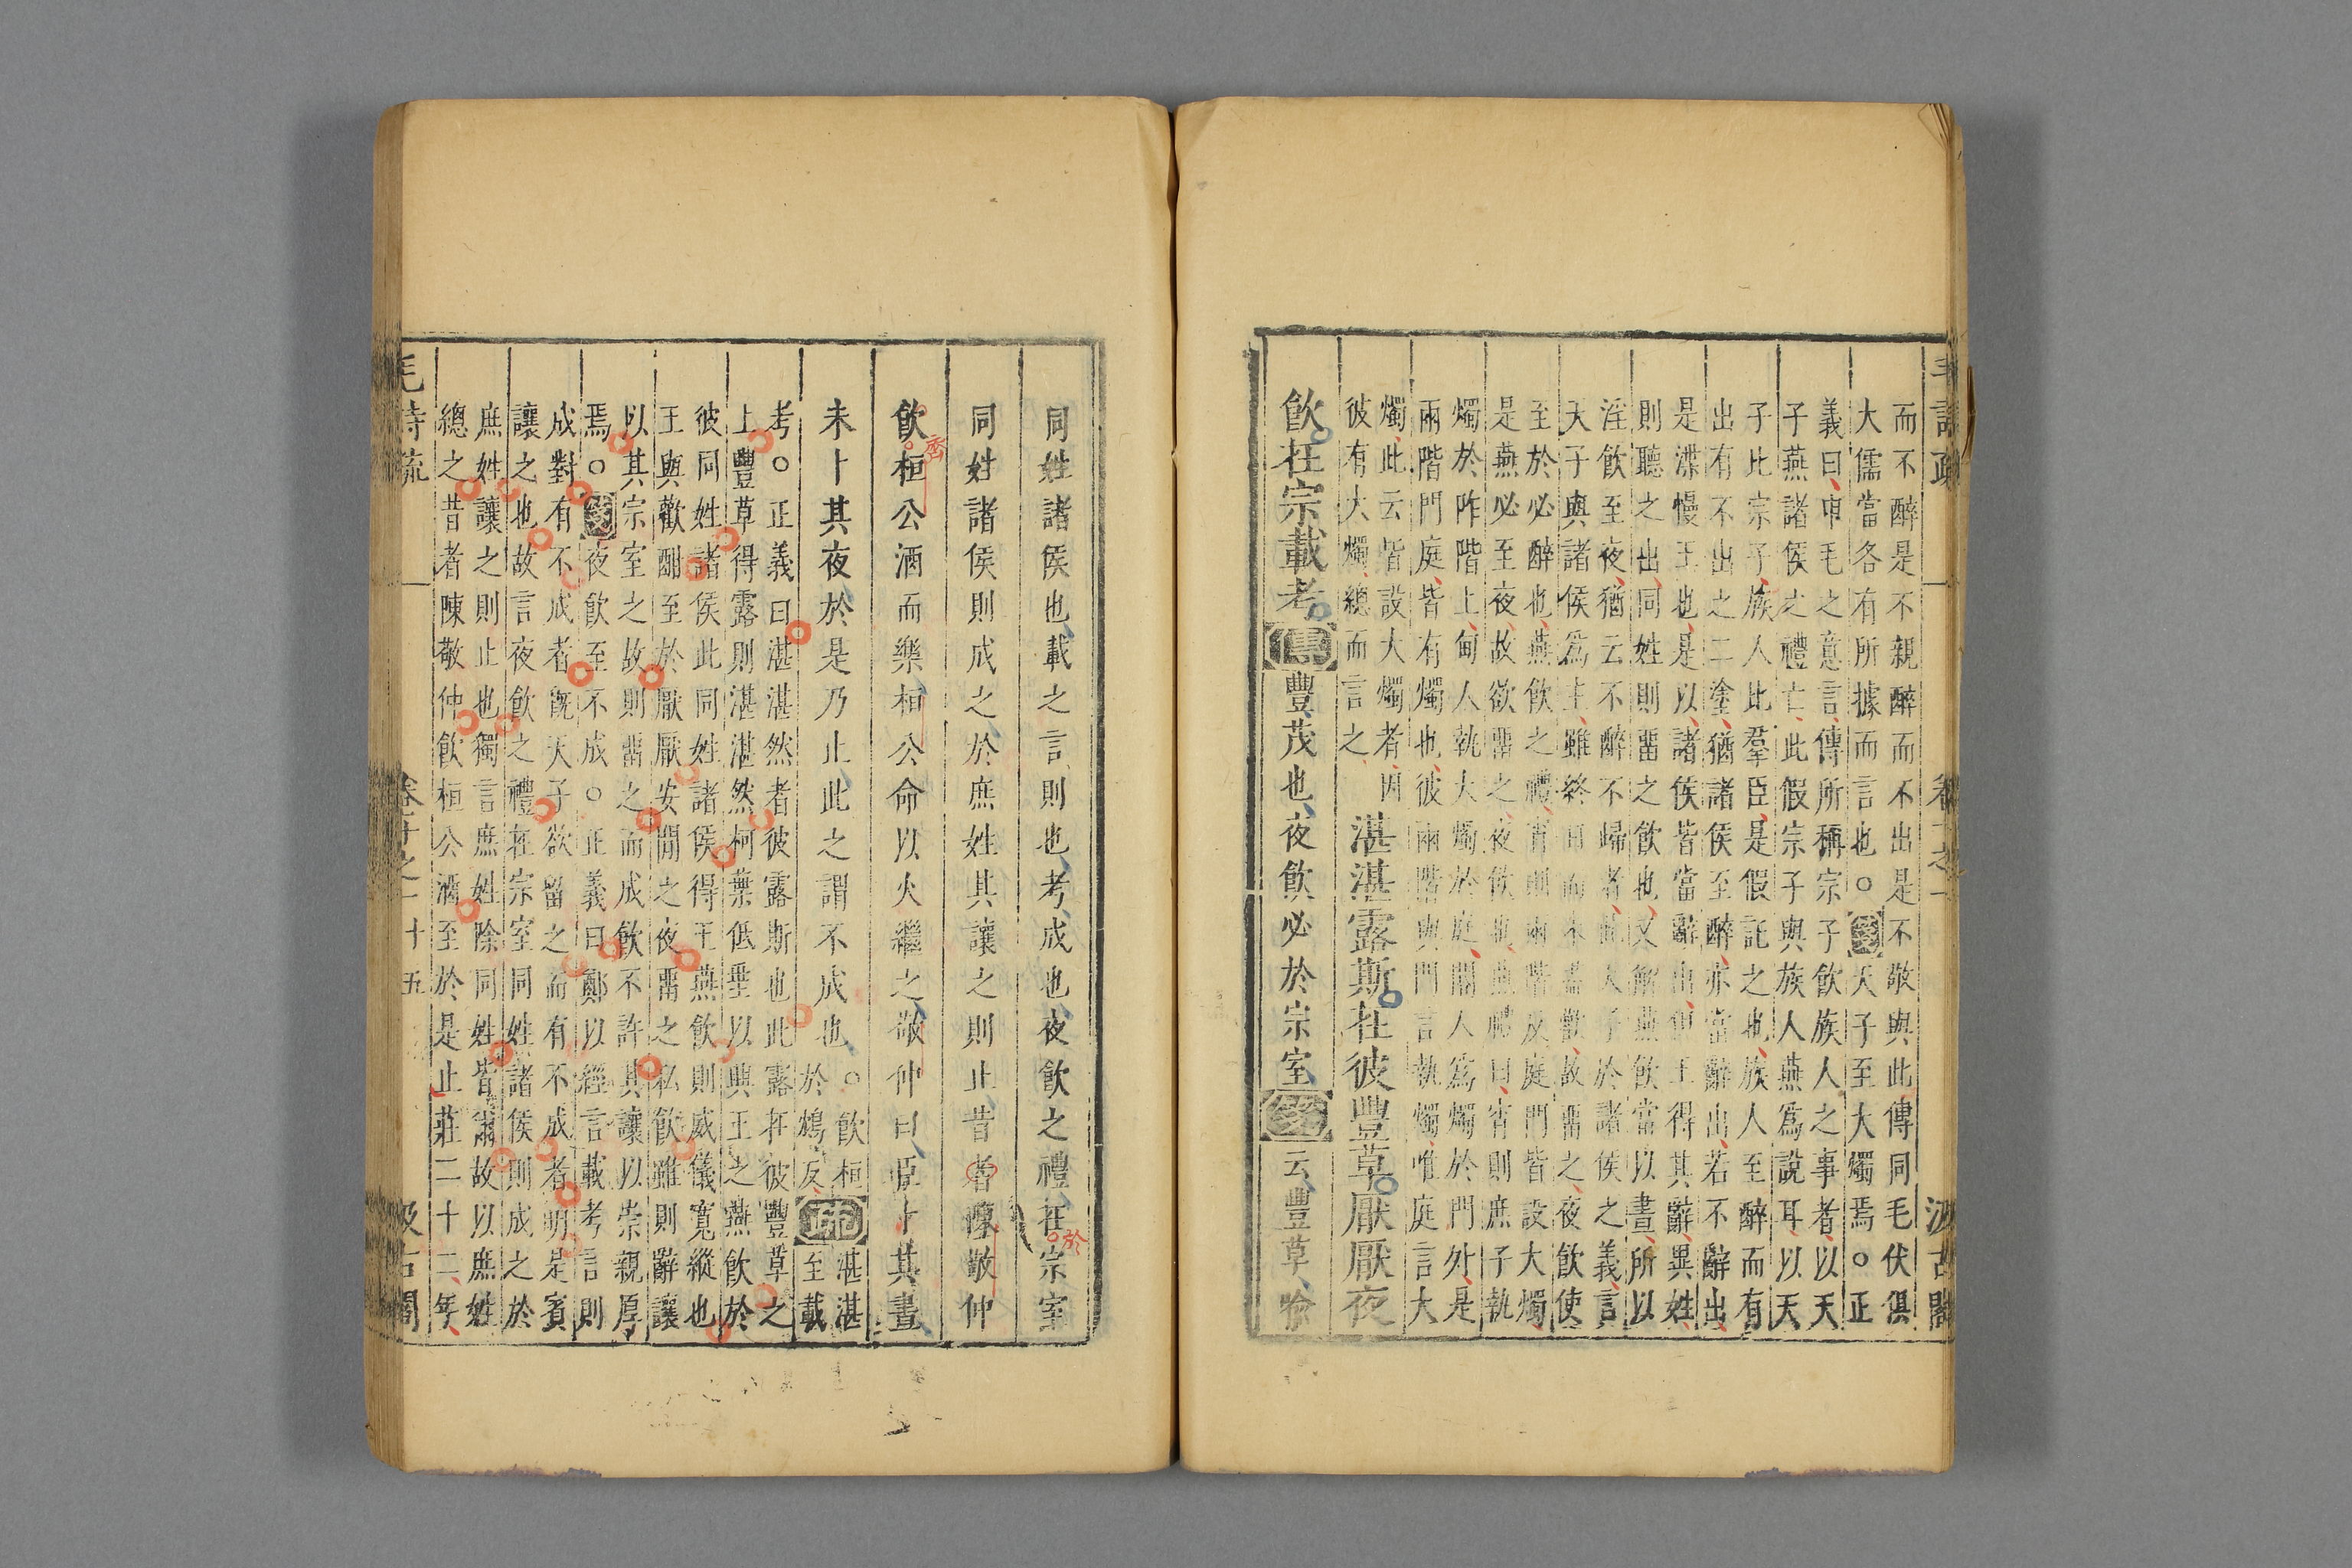 毛詩疏 卷十之一 汲古閣
而不醉是不親醉而不出是不敬與此傳同毛伏俱
大儒當各有所據而言也○箋天子至大燭焉○正
義曰申毛之意言傳所稱宗子飲族人之事者以天
子燕諸侯之禮亡此假宗子與族人燕爲說耳以天
子比宗子族人比羣臣是假託之也族人至醉而有
出有不出之二塗猶諸侯至醉亦當辭出若不辭出
是渫慢王也是以諸侯皆當辭出但王得其辭異姓
則聽之出同姓則畱之飲也又解燕飲當以晝所以
淫飲至夜猶云不醉不歸者此天子於諸侯之義言
天子與諸侯爲主雖終日而不盡歡故畱之夜飲使
至於必醉也燕飲之禮宵則兩階及庭門皆設大燭
是燕必至夜故欲畱之夜飲也燕禮曰宵則庶子執
燭於阼階上甸人執大燭於庭閽人爲燭於門外是
兩階門庭皆有燭也彼兩階與門言執燭唯庭言大
燭此云皆設大燭者因
彼有大燭總而言之
湛湛露斯在彼豐草厭厭夜
飲在宗載考傳豐茂也夜飲必於宗室箋云豐草喻
同姓諸侯也載之言則也考成也夜飲之禮在宗室
於
同姓諸侯則成之於庶姓其讓之則止昔者陳敬仲
飲桓公酒而樂桓公命以火繼之敬仲曰臣卜其晝
未卜其夜於是乃止此之謂不成也○飲桓
於鴆反疏湛湛
至載
考○正義曰湛湛然者彼露斯也此露在彼豐草之
上豐草得露則湛湛然柯葉低垂以興王之燕飲於
彼同姓諸侯此同姓諸侯得王燕飲則威儀寬縱也
王與歡酣至於厭厭安閒之夜畱之私飲雖則辭讓
以其宗室之故則畱之而成飲不許其讓以崇親厚
焉○箋夜飲至不成○正義曰鄭以經言載考考言則
成對有不成者旣天子欲留之而有不成者明是賓
讓之也故言夜飲之禮在宗室同姓諸侯則成之於
庶姓讓之則止也獨言庶姓除同姓皆爲故以庶姓
總之昔者陳敬仲飲桓公酒至於是止莊二十二年
毛詩疏 卷十之一 十五 汲古閣